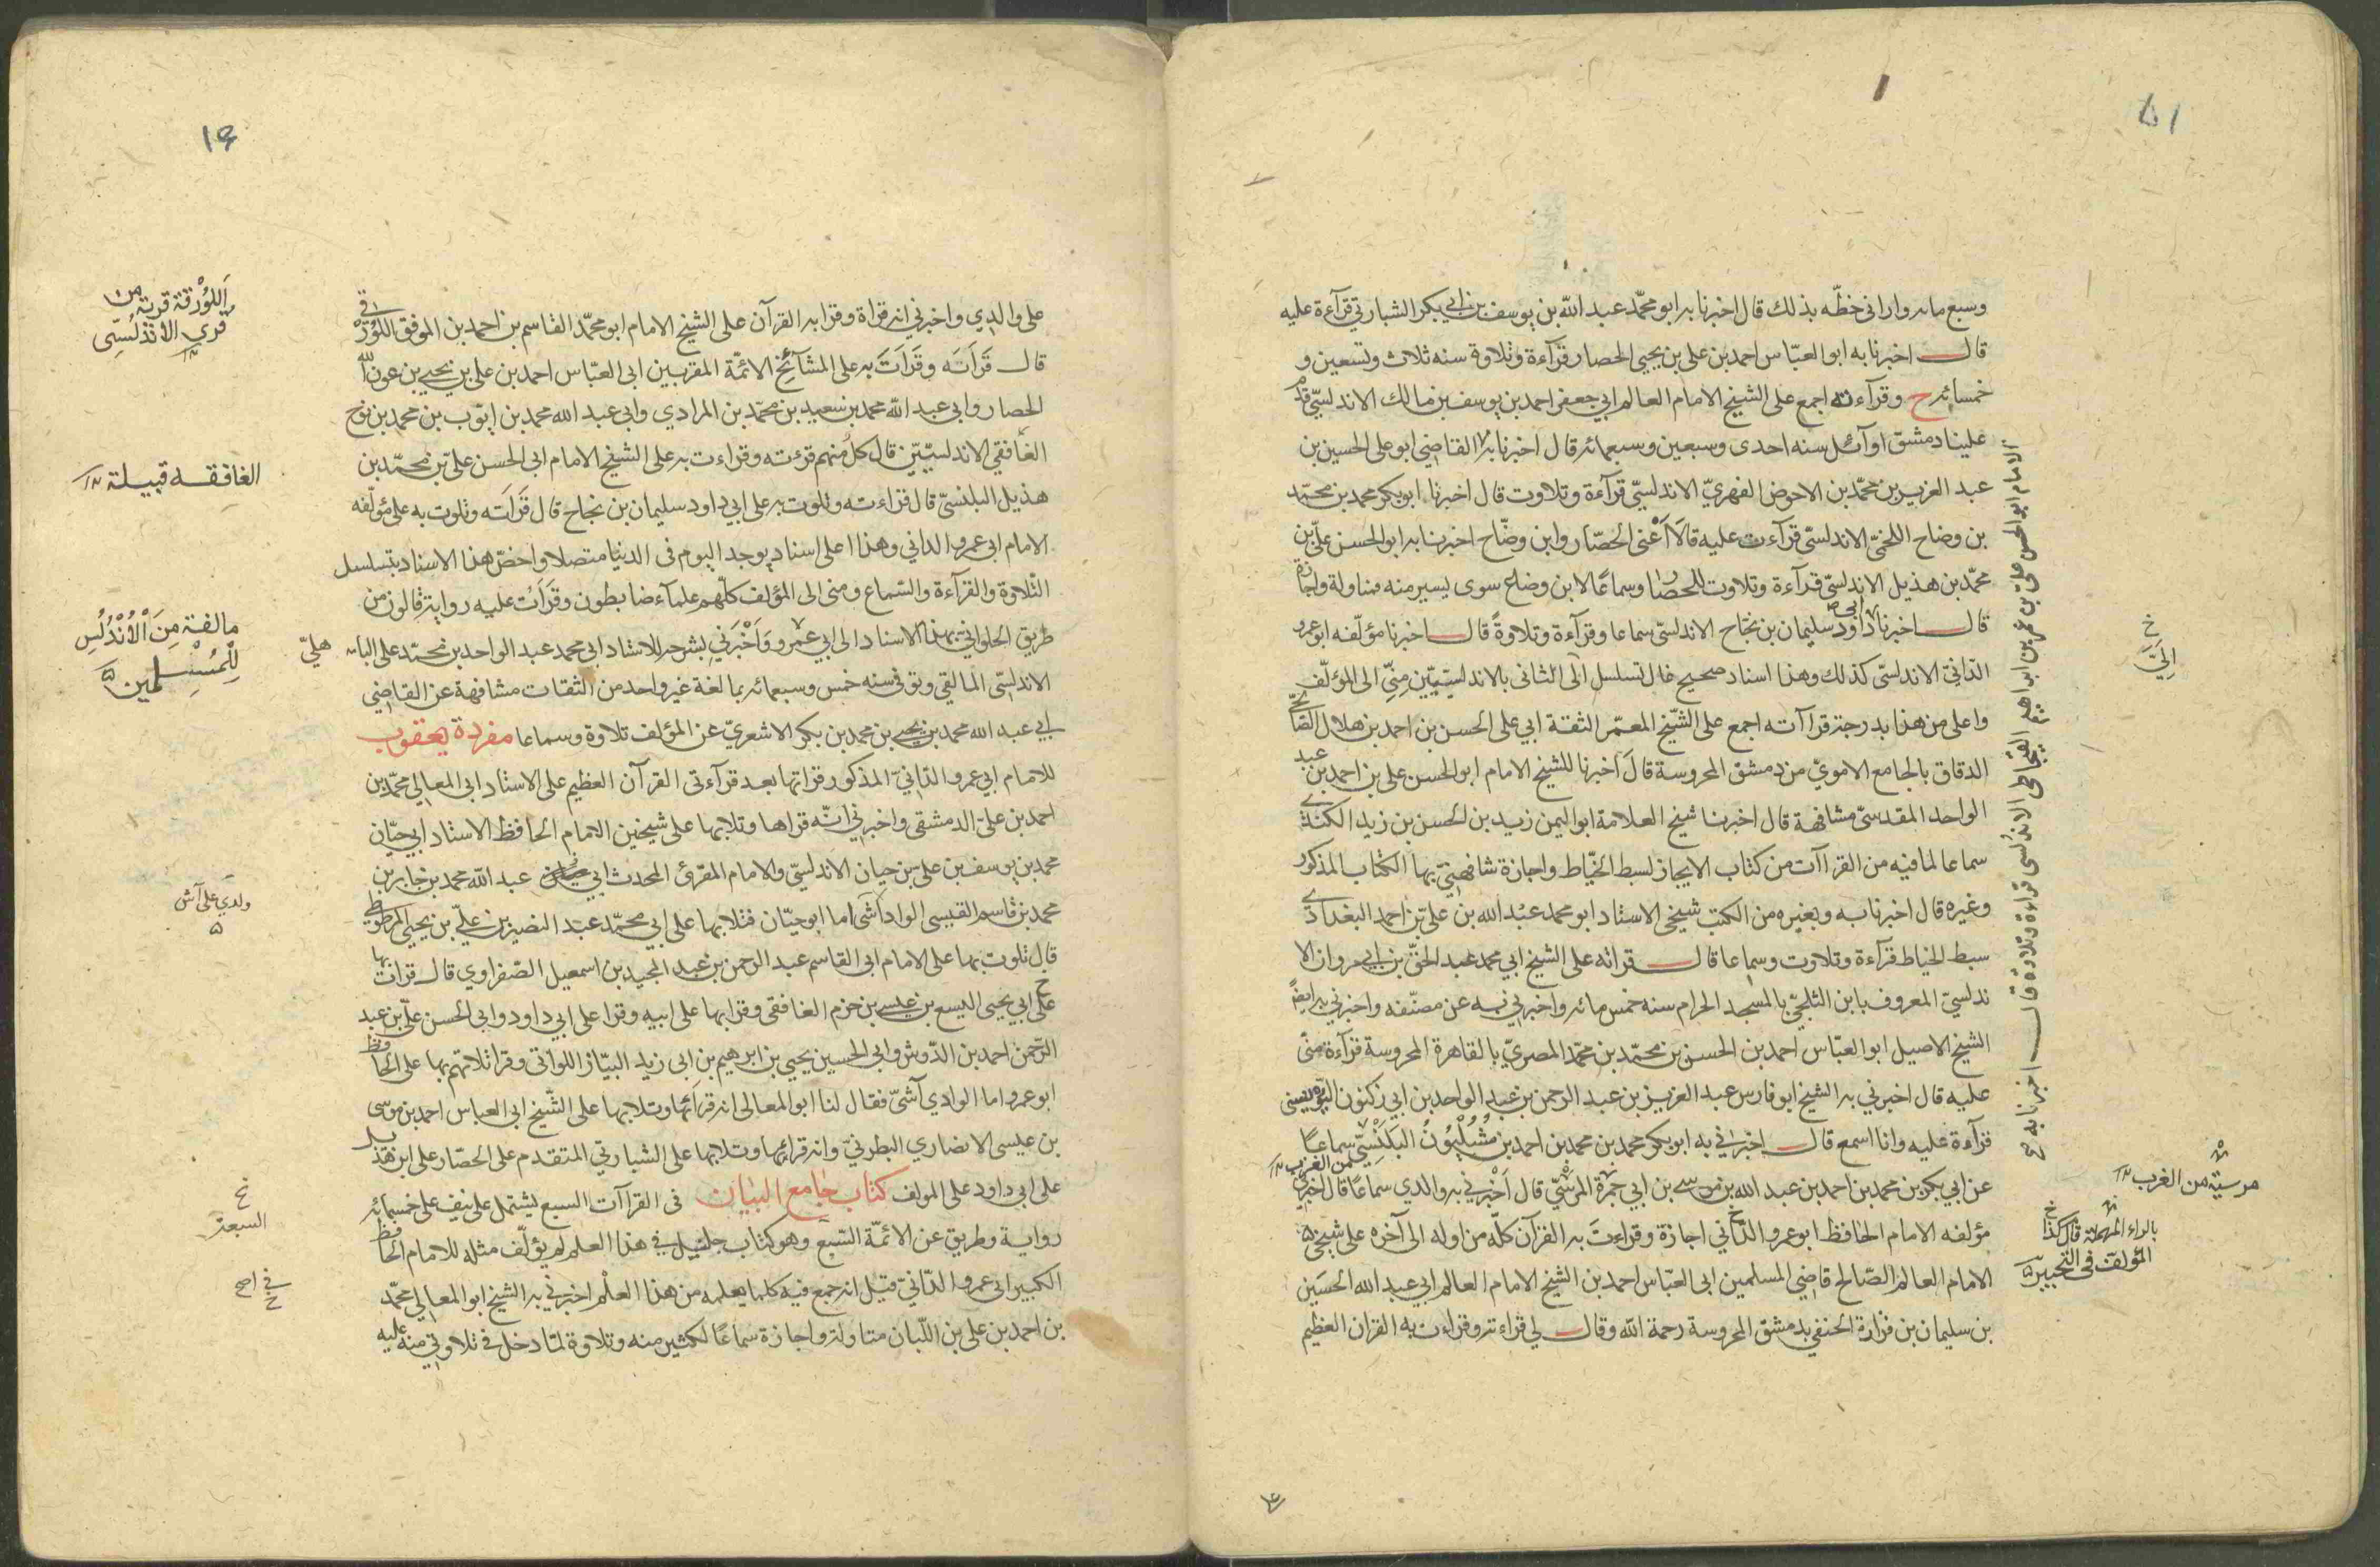 وسبع مايه واراني خطّه بذلك قال اخبرنا به ابو محمّد عبد اللّه بن يوسف بن ابي بكر الشبارتي قرآءة عليه
قال اخبرنا به ابو العبّاس احمد بن علي بن يحيى الحصار قرآءة وتلاوة سنه ثلاث وتسعين و
خمسايه ح وقرآءته اجمع على الشيخ الامام العالم ابي جعفر احمد بن يوسف بن مالك الاندلسيّ قدم
علينا دمشق اوآئل سنه احدى وسبعين وسبعمائه قال اخبرنا به القاضي ابو علي الحسين بن
عبد العزيز بن محمّد بن الاحوض الفهريّ الاندلسيّ قرآءة وتلاوت قال اخبرنا ابو بكر محمد بن محمّد
بن وضاح اللخميّ الاندلسيّ قرآءت عليه قالا اعنى الحصّار وابن وضّاح اخبرنا به ابو الحسن عليّ بن
محمّد بن هذيل الاندلسيّ قرآءة وتلاوت للحصار وسماعا لابن وضاح سوى يسير منه مناولة واجازة
قال اخبرنا ابي داود سليمان بن نجاح الاندلسيّ سماعا وقرآءة وتلاوةً قال اخبرنا مؤلّفه ابو عمرو
الدّانيّ الاندلسيّ كذلك وهذا اسناد صحيح عال تسلسل الى الثاني بالاندلسيّين منّي الى المؤلّف
واعلى من هذا بدرجة قراآته اجمع على الشّيخ المعمّر الثقة ابي علي الحسن بن احمد بن هلال الصّالحيّ
الدقاق بالجامع الامويّ من دمشق المحروسة قال اخبرنا الشيخ الامام ابو الحسن علي بن احمد بن عبد
الواحد المقدسيّ مشافهة قال اخبرنا شيخ العلامة ابو اليمن زيد بن الحسن بن زيد الكندي
سماعا لما فيه من القراآت من كتاب الايجاز لسبط الخيّاط واجازة شافهنيّ بها الكتاب المذكور
وغيره قال اخبرنا به وبغيره من الكتب شيخي الاستاد ابو محمد عبد الله بن عليّ بن احمد البغدادي
سبط الخياط قرآءة وتلاوت وسماعا قال قراته على الشيخ ابي محمد عبد الحقّ بن ابي مروان الا
ندلسيّ المعروف بابن الثلجيّ بالمسجد الحرام سنه خمس مائه واخبرني به عن مصنّفه واخبرني به ايضًا
الشيخ الاصيل ابو العبّاس احمد بن الحسن بن محمّد بن محمّد المصريّ بالقاهرة المحروسة قرآءة منّي
عليه قال اخبرني به الشيخ ابو فارس عبد العزيز بن عبد الرحمن بن عبد الواحد بن ابي زكنون التونسي
قرآءة عليه وانا اسمع قال اخبرني به ابو بكر محمد بن محمد بن احمد بن مُشُلْيُونُ البَلَنْسِيّ سماعًا
عن ابي بكر بن محمد بن احمد بن عبد الله بن موسى بن ابي جمرة المرسيّ قال اخبرني به والدي سماعًا قال اخبرني
مؤلفه الامام الحافظ ابو عمرو الدّاني اجازة وقراءتَ به القرآن كلّه من اوله الى آخره على شيخي
الامام العالم الصّالح قاضي المسلمين ابي العبّاس احمد بن الشيخ الامام العالم ابي عبد الله الحسَين
بن سليمان بن فزارة الحنفي بدمشق المحروسة رحمة اللّه وقال لي قراءته وقراءت به القران العظيم
الامام ابو الحسن علي بن عمر بن ابراهيم القيجاطي الاندلسي قراءة وتلاوة قال اخبرنا به ح
خ
الَيَّ
مرسيّة من الغرب
بالراء المهملة قال كذا
المؤلف في التحبير
١٦
على والدي واخبرني انه قراة وقرا به القرآن على الشيخ الامام ابو محمّد القاسم بن احمد بن الموفق اللُّورْقي
قال قَرَأتَه وقَرَأتَ به على المشآئخ الائمّة المقربين ابي العبّاس احمد بن علي بن يحيى بن عون الله
الحصار وابي عبد اللّه محمد بن سعيد بن محمّد بن المرادي وابي عبد الله محمد بن ايّوب بن محمد بن نوح
الغافقي الاندلسيّيّن قال كلّ منهم قرءته وقراءت به على الشيخ الامام ابي الحسن عليّ بن محمّد بن
هذيل البلنسيّ قال قراءته وتلوت به على ابي داود سليمان بن نجاح قال قَرَأتَه وتلوت به على مؤلّفه
الامام ابي عمرو الداني وهذا اعلى اسناد يوجد اليوم في الدنيا متصلا واخصّ هذا الاسناد بتسلسل
التّلاوة والقرآءة والسّماع ومني الى المؤلف كلّهم علمآء ضابطون وقَرَأتُ عليه رواية قالون من
طريق الحلواني بهذا الاسناد الى ابي عمرو وَاَخْبَرَنِي بشرحه للاستاد ابي محمد عبد الواحد بن محمّد علي الباهليّ
الاندلسيّ المالقي وتوفي سنه خمس وسبعمائه بمالغة غير واحد من الثقات مشافهة عن القاضي
ابي عبد الله محمد بن يحيى بن محمد بن بكر الاشعريّ عن المؤلف تلاوة وسماعا مفردة يعقوب
للامام ابي عمرو الدّانيّ المذكور قراتها بعد قرآءتي القرآن العظيم على الاستاد ابي المعالي محمّد بن
احمد بن علي الدمشقي واخبرني انّه قراها وتلا بها على شيخين الامام الحافظ الاستاد ابي حيّان
محمد بن يوسف بن علي بن حيان الاندلسيّ والامام المقرئ المحدث ابي عبد اللّه محمد بن جابر بن
محمد بن قاسم القيسي الواداشي اما ابو حيّان فتلا بها على ابي محمّد عبد النصير بن عليّ بن يحيى المرطوبي
قال تلوت بها على الامام ابي القاسم عبد الرحمن بن عبد المجيد بن اسمعيل الصّفراوي قال قرات بها
على ابي يحيى اليسع بن عيسى بن حزم الغافقي وقرا بها على ابيه وقرا على ابي داود وابي الحسن عليّ بن عبد
الرّحمن احمد بن الدّوش وابي الحسين يحيى بن ابرهيم بن ابي زيد البيّاز اللواتي وقرا ثلاثتهم بها على الحافظ
ابو عمرو اما الوادي آشيّ فقال لنا ابو المعالي انه قرأها وتلا بها على الشّيخ ابي العباس احمد بن موسى
بن عيسى الانصاري البطرنيّ وانه قرائها وتلا بها على الشبارتي المتقدم على الحصّار على ابن هذيل
على ابي داود على المولف كتاب جامع البيان في القراآت السبع يشتمل على نيف على خمسمائه
رواية وطريق عن الائمّة السّبع وهو كتاب جليل في هذا العلم لم يؤلّف مثله للامام الحافظ
الكبير ابي عمرو الدّانيّ قيل انه جمع فيه كلما يعلمه من هذا العلم اخبرني به الشيخ ابو المعالي محمّد
بن احمد بن علي بن اللّبان مناولة واجازة سماعًا لكثير منه وتلاوة لمّا دخل في تلاوتي منه عليه
اَللُّوُرْقة قرية من
قري الاندلسي
الغافقه قبيلة
مالقة مِنَ اْلاُنْدُلُسِ
لِلْمُسْلِمين
ولدي على آش
خ
السبعة